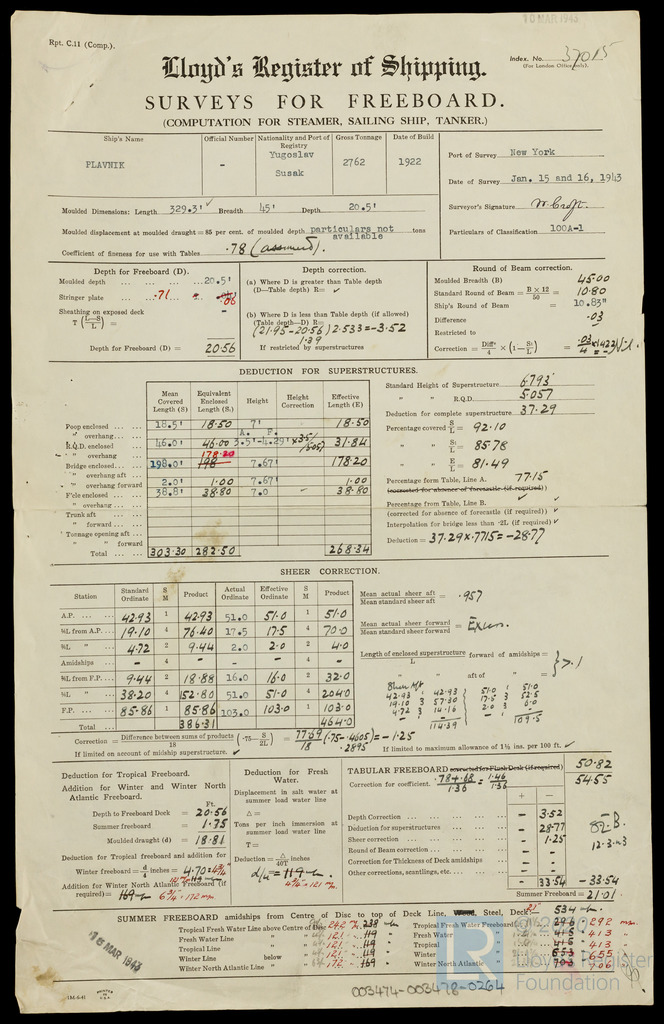 10 MAR 1943
Rpt. C.11 (Comp.).
Index. No. 37015
(For London Office only).
Lloyd's Register of Shipping.
SURVEYS FOR FREEBOARD.
(COMPUTATION FOR STEAMER, SAILING SHIP, TANKER.)
Ship's Name Official Number Nationality and Port of Registry Gross Tonnage Date of Build
PLAVNIK - Yugoslav Susak 2762 1922
Port of Survey New York
Date of Survey Jan. 15 and 16, 1943
Surveyor's Signature W. Croft.
Particulars of Classification 100A-1
Moulded Dimensions: Length 329.3' Breadth 45' Depth 20.5'
Moulded displacement at moulded draught = 85 per cent. of moulded depth particulars not available tons
Coefficient of fineness for use with Tables .78 (assumed).
Depth for Freeboard (D).
Moulded depth 20.5'
Stringer plate .71 .06
Sheathing on exposed deck -
T (L-S/L) =
Depth for Freeboard (D) = 20.56
Depth correction.
(a) Where D is greater than Table depth
(D-Table depth) R=
(b) Where D is less than Table depth (if allowed)
(Table depth-D) R=
(21.95-20.56) 2.533 = -3.52
1.39
If restricted by superstructures
Round of Beam correction.
Moulded Breadth (B) 45.00
Standard Round of Beam = B x 12/50 = 10.80
Ship's Round of Beam = 10.83"
Difference .03
Restricted to
Correction = Diff/4 x (1-S₁/L) = .03/4
DEDUCTION FOR SUPERSTRUCTURES.
Mean Covered Length (S) Equivalent Enclosed Length (S₁) Height Height Correction Effective Length (E)
Poop enclosed 18.5' 18.50 7' 18.50
" overhang A. F.
R.Q.D. enclosed 46.0' 46.00 3.5'-4.29' x3.5/5.057 31.84
" overhang 178.20
Bridge enclosed 198.0' 198 7.67' 178.20
" overhang aft
" overhang forward 2.0' 1.00 7.67' 1.00
F'cle enclosed 38.8' 38.80 7.0 - 38.80
" overhang
Trunk aft
" forward
Tonnage opening aft
" " forward
Total 303.30 282.50 268.34
Standard Height of Superstructure 6.793
" " R.Q.D. 5.057
Deduction for complete superstructure 37.29
Percentage covered S/L = 92.10
" " S₁/L = 85.78
" " E/L = 81.49
Percentage from Table, Line A. 77.15
(corrected for absence of forecastle (if required))
Percentage from Table, Line B.
(corrected for absence of forecastle (if required))
Interpolation for bridge less than ·2L (if required)
Deduction = 37.29 x .7715 = -28.77
SHEER CORRECTION.
Station Standard Ordinate S M Product Actual Ordinate Effective Ordinate S M Product
A.P. 42.93 1 42.93 51.0 51.0 1 51.0
⅙L from A.P. 19.10 4 76.40 17.5 17.5 4 70.0
⅓L " 4.72 2 9.44 2.0 2.0 2 4.0
Amidships - 4 - - - 4 -
⅓L from F.P. 9.44 2 18.88 16.0 16.0 2 32.0
⅙L " 38.20 4 152.80 51.0 51.0 4 204.0
F.P. 85.86 1 85.86 103.0 103.0 1 103.0
Total 386.31 464.0
Mean actual sheer aft / Mean standard sheer aft = .957
Mean actual sheer forward / Mean standard sheer forward = Excess.
Length of enclosed superstructure / L forward of amidships =
" aft of " = } >.1
Sheer Aft
42.93 1 42.93 51.0 1 51.0
19.10 3 57.30 17.5 3 52.5
4.72 3 14.16 2.0 3 6.0
114.39 109.5
Correction = Difference between sums of products/18 (·75-S/2L) = 77.69/18 (.75-.4605) = -1.25
.2895
If limited on account of midship superstructure.
If limited to maximum allowance of 1½ ins. per 100 ft.
Deduction for Tropical Freeboard.
Addition for Winter and Winter North Atlantic Freeboard.
Ft.
Depth to Freeboard Deck = 20.56
Summer freeboard = 1.75
Moulded draught (d) = 18.81
Deduction for Tropical freeboard and addition for
Winter freeboard = d/4 inches = 4.70 = 4¾"
Addition for Winter North Atlantic Freeboard (if required) = 169 m 6¾" = 172 mm
Deduction for Fresh Water.
Displacement in salt water at summer load water line
Δ =
Tons per inch immersion at summer load water line
T =
Deduction = Δ/40T inches
d/4 = 119 m
4¾ = 121 mm
TABULAR FREEBOARD corrected for Flush Deck (if required) 50.82
Correction for coefficient. .78+.68/1.36 = 1.46/1.36 54.55
+ -
Depth Correction - 3.52
Deduction for superstructures - 28.77
Sheer correction - 1.25
Round of Beam correction - -
Correction for Thickness of Deck amidships - -
Other corrections, scantlings, etc. - -
- 33.54 -33.54
Summer Freeboard = 21.01
12.3.43
SUMMER FREEBOARD amidships from Centre of Disc to top of Deck Line, Wood, Steel, Deck: 21" 534
Tropical Fresh Water Line above Centre of Disc 242 238
Fresh Water Line " " 121 119
Tropical Line " " 121 119
Winter Line below " 121 119
Winter North Atlantic Line " " 172 169
Tropical Fresh Water Freeboard 296 292
Fresh Water " 415 413
Tropical " 415 413
Winter " 653 655
Winter North Atlantic " 703 706
16 MAR 1943
1M-6-41 PRINTED IN U.S.A.
003474-003478-0264
Lloyd's Register
Foundation